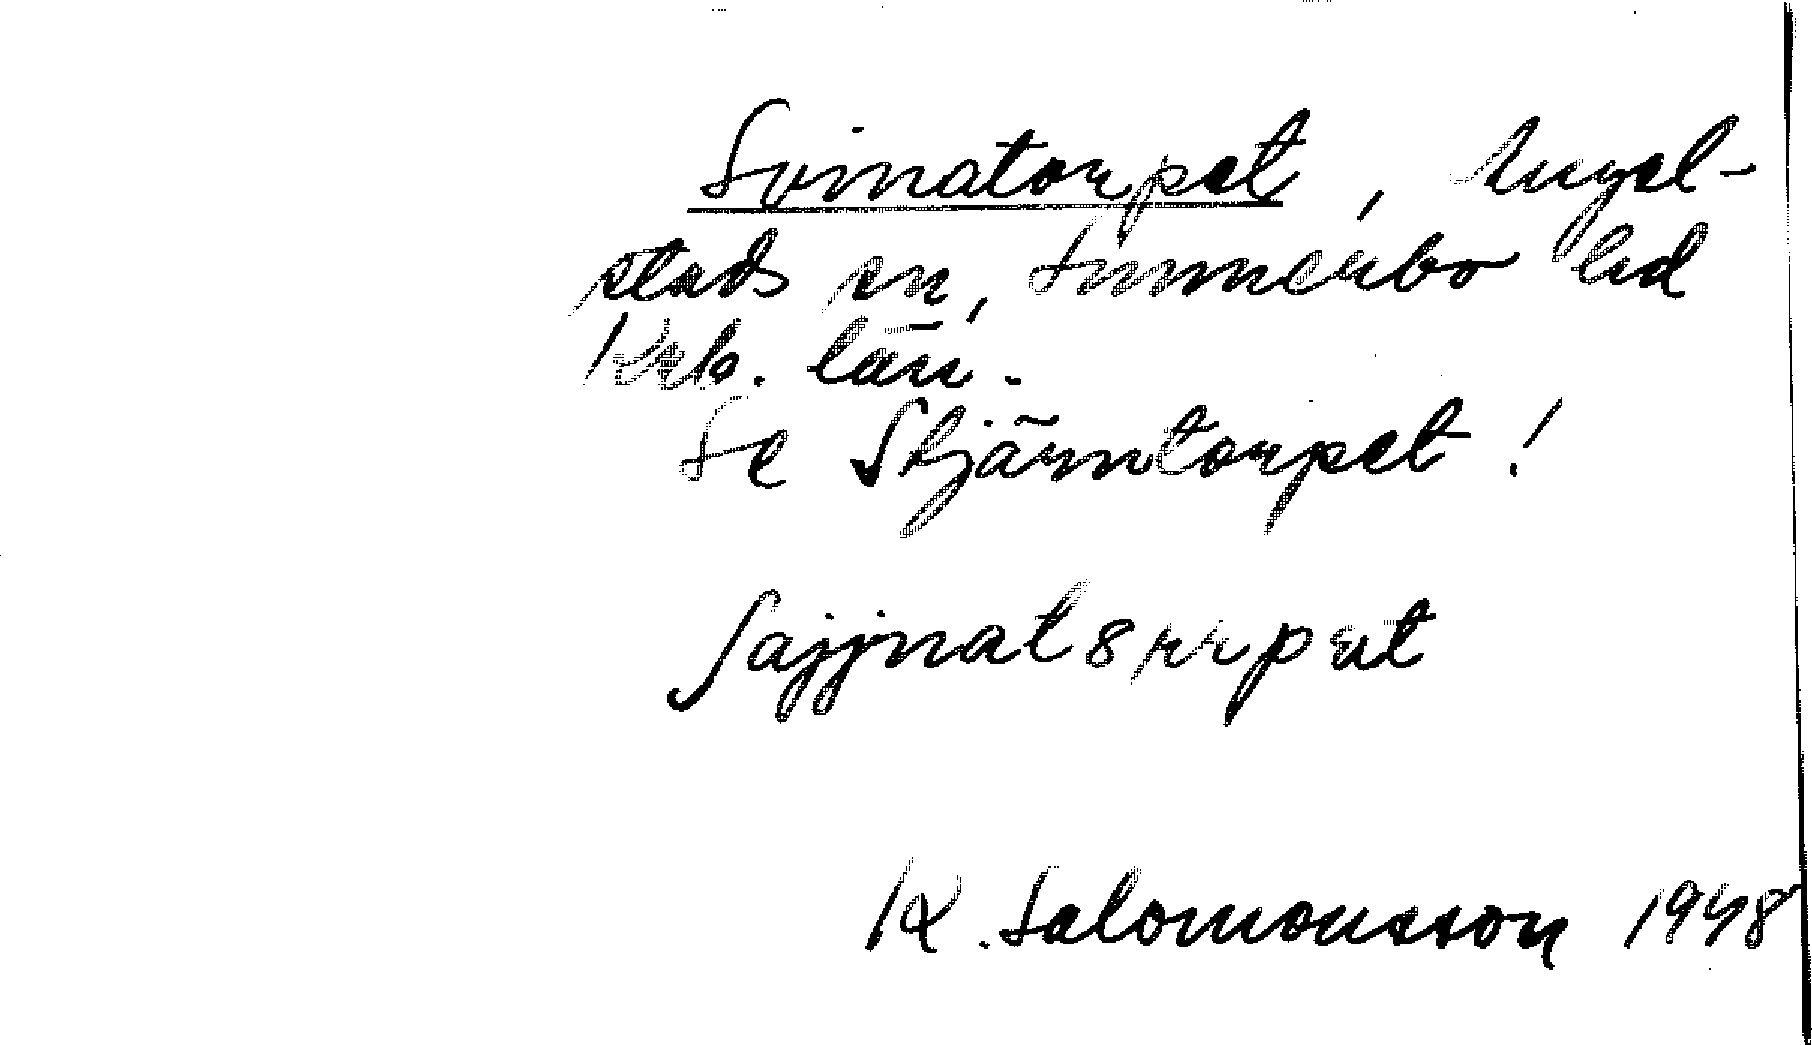 Svinatorpet, Angel-
stads sn, Sunnerbo hd
Krb. län.
Se Stjärntorpet!
Sajjnat8rrpet
K. Salomonsson 1948